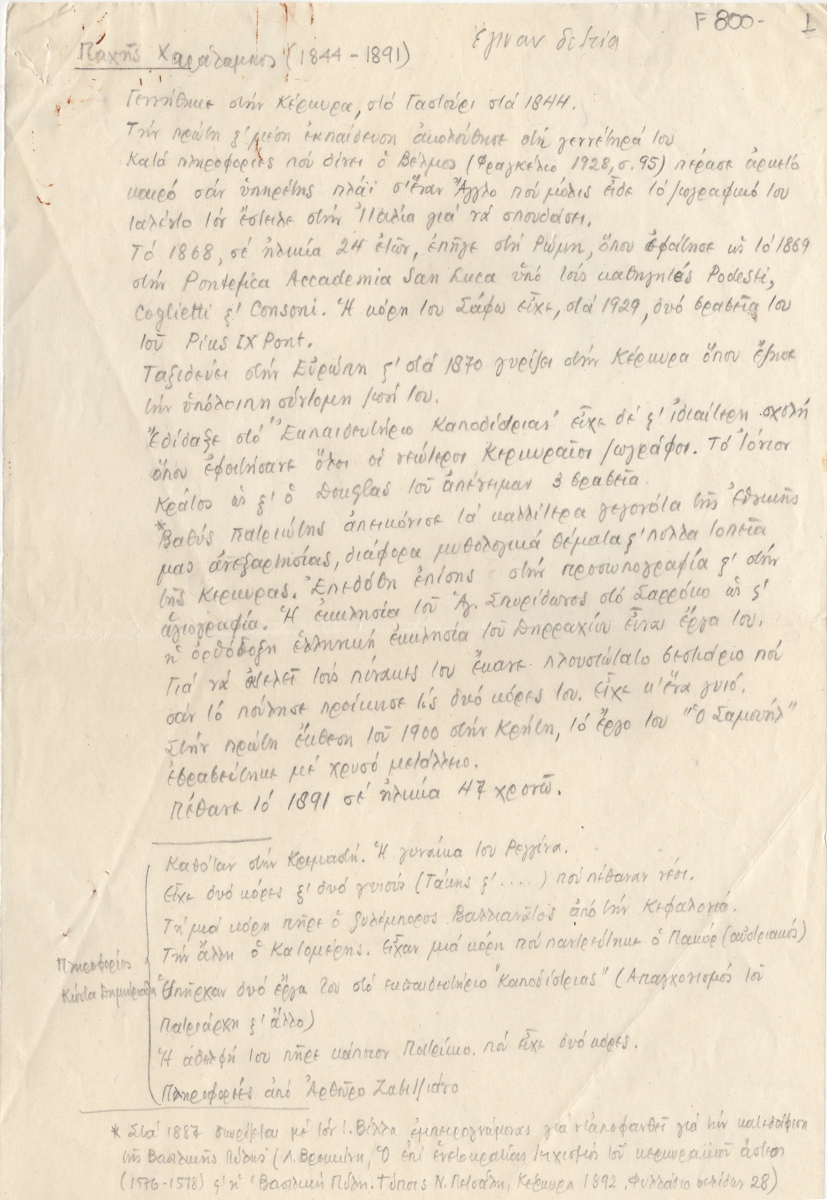 F 800- 1
Ἔγιναν δελτία
Παχῆς Χαράλαμπος (1844 - 1891)
Γεννήθηκε στήν Κέρκυρα, στό Γαστούρι στά 1844.
Τήν πρώτη ξ' μέση ἐκπαίδευση ἀκολούθησε στή γεννέτηρά του
Κατά πληροφορίες πού δίνει ὁ Βέλμος (Φραγκέλιο 1928, σ. 95) πέρασε ἀρκετό
καιρό σάν ὑπηρέτης πλάϊ σ' ἕναν Ἄγγλο πού μόλις εἶδε τό ζωγραφικό του
ταλέντο τόν ἔστειλε στήν Ἰταλία γιά νά σπουδάσει.
Τό 1868, σέ ἡλικία 24 ἐτῶν, ἐπῆγε στή Ρώμη, ὅπου ἐφοίτησε ὡς τό 1869
στήν Pontefica Accademia San Luca ὑπό τούς καθηγητές Podesti,
Coglietti ξ' Consoni. Ἡ κόρη του Σάφω εἶχε, στά 1929, δυό βραβεῖα του
τοῦ Pius IX Pont.
Ταξιδεύει στήν Εὐρώπη ξ' στά 1870 γυρίζει στήν Κέρκυρα ὅπου ἔζησε
τήν ὑπόλοιπη σύντομη ζωή του.
Ἐδίδαξε στό "Ἐκπαιδευτήριο Καποδίστριας" εἶχε δέ ξ' ἰδιαίτερη σχολή
ὅπου ἐφοιτήσανε ὅλοι οἱ νεώτεροι Κερκυραῖοι ζωγράφοι. Τό Ἰόνιον
Κράτος ὡς ξ' ὁ Douglas τοῦ ἀπένειμαν 3 βραβεῖα.
*Βαθύς πατριώτης ἀπεικόνισε τά καλλίτερα γεγονότα τῆς ἐθνικῆς
μας ἀνεξαρτησίας, διάφορα μυθολογικά θέματα ξ' πολλά τοπεῖα
τῆς Κέρκυρας. Ἐπεδόθη ἐπίσης στήν προσωπογραφία ξ' στήν
ἁγιογραφία. Ἡ ἐκκλησία τοῦ Ἁγ. Σπυρίδωνος στό Σαρρόκο ὡς ξ'
ἡ ὀρθόδοξη ἑλληνική ἐκκλησία τοῦ Δηρραχίου εἶναι ἔργα του.
Γιά νά ἐκτελεῖ τούς πίνακες του ἔκανε πλουσιώτατο βεστιάριο πού
σάν τό πούλησε προίκησε τίς δυό κόρες του. Εἶχε κ' ἕνα γυιό.
Στήν πρώτη ἔκθεση τοῦ 1900 στήν Κρήτη, τό ἔργο του "Ὁ Σαμουήλ"
ἐβραβεύτηκε μέ χρυσό μετάλλειο.
Πέθανε τό 1891 σέ ἡλικία 47 χρονῶ.
Καθόταν στήν Κρεμαστή. Ἡ γυναίκα του Ρεγγίνα.
Εἶχε δυό κόρες ξ' δυό γυιούς (Τάκης ξ' ....) πού πέθαναν νέοι.
Τή μιά κόρη πῆρε ὁ ξυλέμπορος Βαλλιανᾶτος ἀπό τήν Κεφαλονιά.
Τήν ἄλλη ὁ Κατομέρης. Εἶχαν μιά κόρη πού παντρεύτηκε ὁ Πακόρ (αὐστριακός)
Πληροφορίες
Κώστα Δημητριάδη
Ὑπῆρχαν δυό ἔργα του στό ἐκπαιδευτήριο "Καποδίστριας" (Ἀπαγχονισμός τοῦ
Πατριάρχη ξ' ἄλλο)
Ἡ ἀδελφή του πῆρε κάποιον Πατρίκιο. πού εἶχε δυό κόρες.
Πληροφορίες ἀπό Ἀρθοῦρο Ζαβιτζιάνο
* Στά 1887 διορίζεται μέ τόν Ι. Βίλλα ἐμπειρογνώμονας γιά ν' ἀποφανθεῖ γιά τήν κατεδάφιση
τῆς Βασιλικῆς Πύλης (Λ. Βροκίνη, Ὁ ἐπί ἑνετοκρατίας τειχισμός τοῦ κερκυραϊκοῦ ἄστεος
(1576-1578) ξ' ἡ Βασιλική Πύλη. Τύποις Ν. Πετσάλη, Κέρκυρα 1892. Φυλλάδιο σελίδων 28)